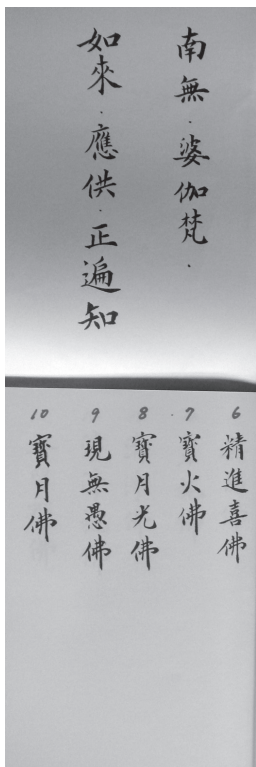 南無·婆伽梵·
如來·應供·正遍知
6 精進喜佛
7 寶火佛
8 寶月光佛
9 現無愚佛
10 寶月佛